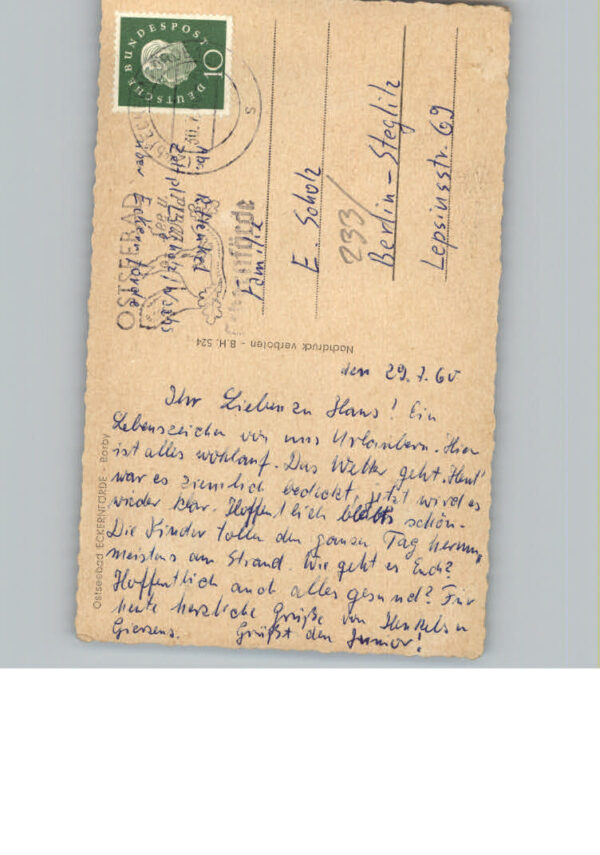 DEUTSCHE BUNDESPOST
10
OSTSEEBAD
Eckernförde
Abs. R. Henkel
Zeltplatz
über Eckernförde
Familie
E. Scholz
233/
Berlin-Steglitz
Lepsiusstr. 69
Nachdruck verboten - B.H. 524
Ostseebad ECKERNFÖRDE - Borby
den 29.7.60
Ihr Lieben zu Haus! Ein
Lebenszeichen von uns Urlaubern. Hier
ist alles wohlauf. Das Wetter geht. Heut'
war es ziemlich bedeckt, jetzt wird es
wieder klar. Hoffentlich bleibts schön.
Die Kinder tollen den ganzen Tag herum,
meistens am Strand. Wie geht es Euch?
Hoffentlich auch alles gesund? Für
heute herzliche Grüße von Henkels u
Giersens. Grüßt den Junior!